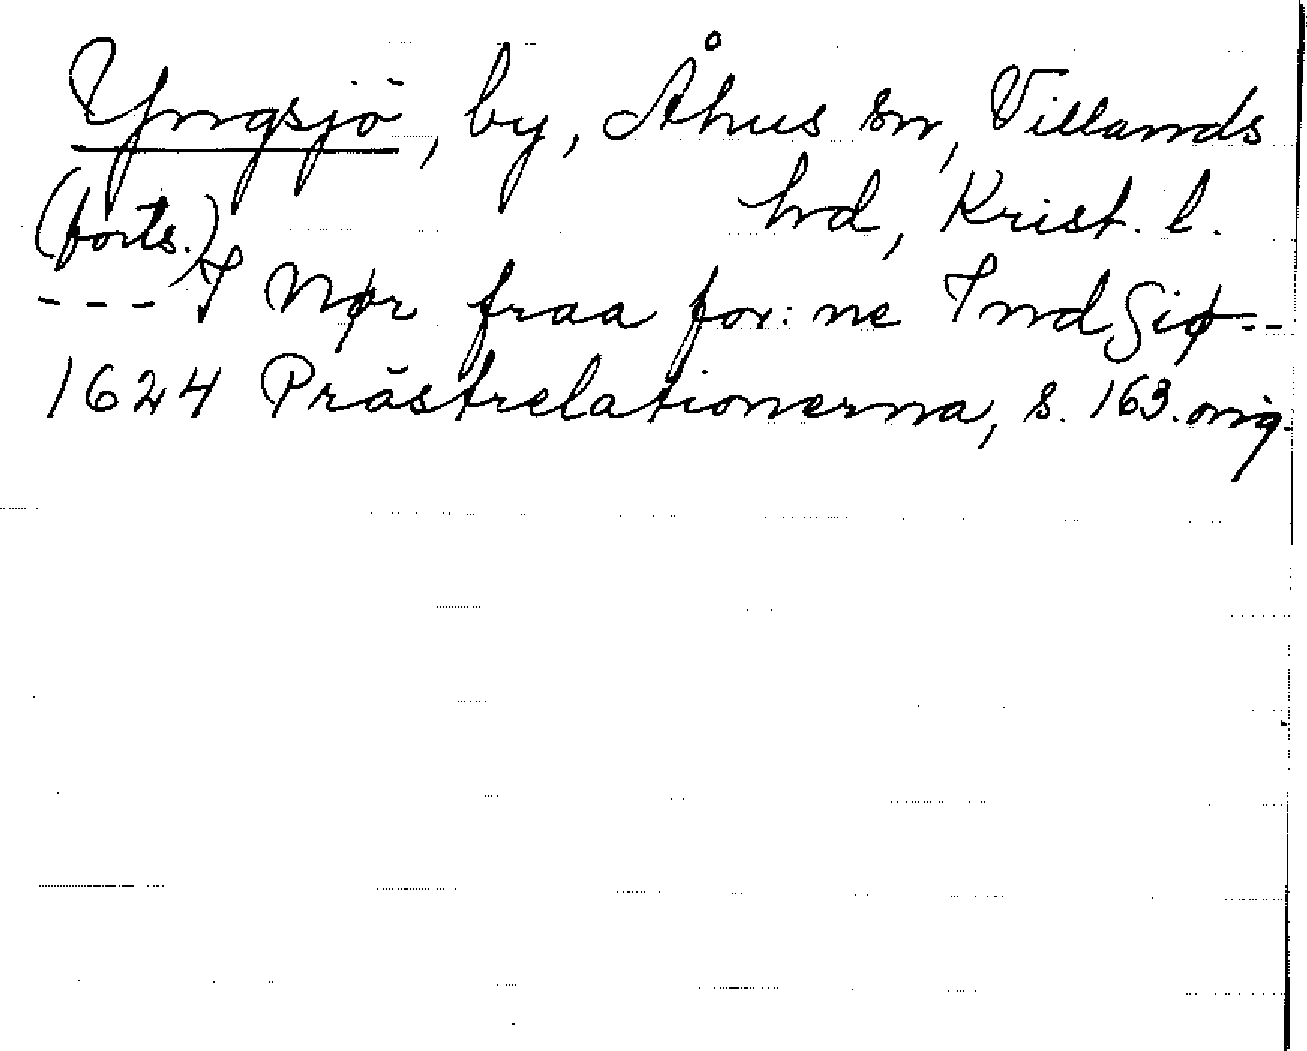 Yngsjö, by, Åhus sn, Villands
(forts.) hrd, Krist. l.
--- I Nør fraa for: ne Ind Siø --
1624 Prästrelationerna, s. 163. orig.